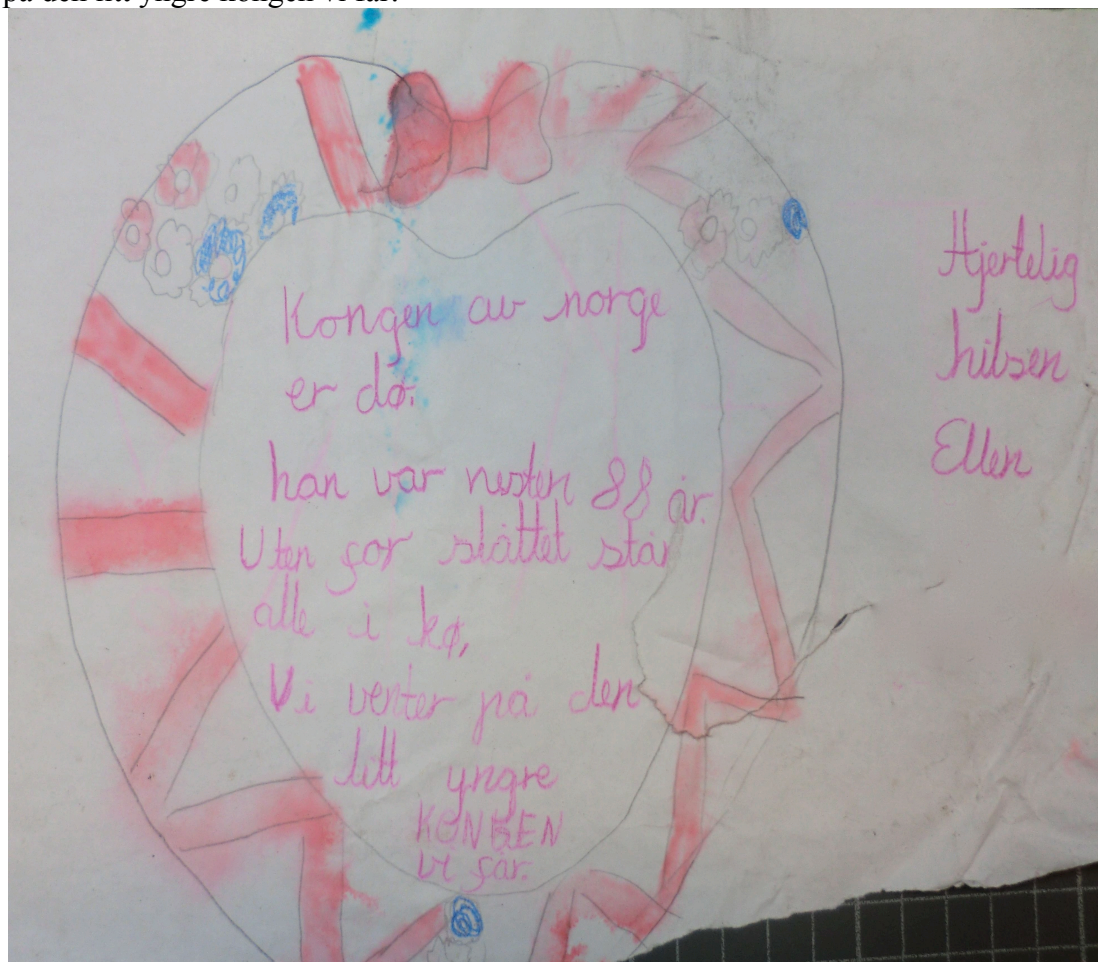 på den litt yngre kongen vi får.
Kongen av norge
er dø.
han var nesten 88 år.
Uten for slåttet står
alle i kø,
Vi venter på den
litt yngre
KONGEN
vi får.
Hjertelig
hilsen
Ellen